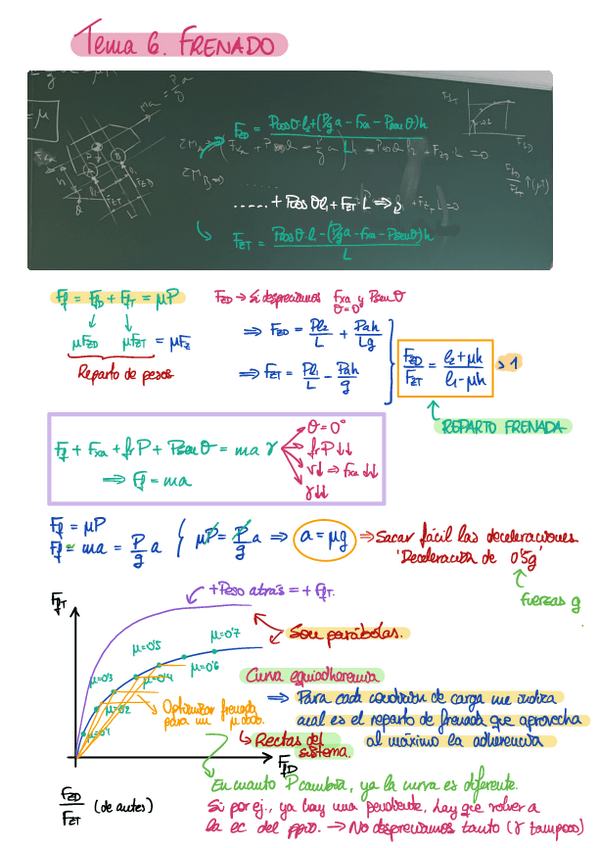 Tema 6. FRENADO
F_ZD = (Pcosθ·l₂+(P/g a − Fxa − Psenθ)h
= μ
ma = P/g a
..... + Pcosθl₁ + F_ZT·L ⇒
F_ZT = (Pcosθ·l₁ − (P/g a − Fxa − Psenθ)h) / L
Ff = FfD + FfT = μP
μF_ZD μF_ZT = μF_Z
Reparto de pesos
F_ZD → Si despreciamos Fxa y Psenθ
θ=0°
⇒ F_ZD = Pl₂/L + Pah/Lg
⇒ F_ZT = Pl₁/L − Pah/g
F_ZD/F_ZT = (l₂+μh)/(l₁−μh) > 1
REPARTO FRENADA
Ff + Fxa + frP + Psenθ = maγ
⇒ Ff = ma
θ=0°
frP↓↓
v↓ ⇒ Fxa↓↓
γ↓↓
Ff = μP
Ff = ma = P/g a
μP = P/g a ⇒ a = μg
→ Sacar fácil las deceleraciones
'Deceleración de 0'5g'
fuerzas g
FfT
+Peso atrás = + FfT.
Son parábolas.
μ=0'7
μ=0'6
μ=0'5
μ=0'4
μ=0'3
μ=0'2
μ=0'1
Optimizar frenada
para un μ dado.
Curva equiadherencia
⇒ Para cada condición de carga me indica
cual es el reparto de frenada que aprovecha
al máximo la adherencia
↳ Rectas del
sistema.
FfD
F_ZD/F_ZT (de antes)
En cuanto P cambia, ya la curva es diferente.
Si por ej., ya hay una pendiente, hay que volver a
la ec del ppio. → No despreciamos tanto (γ tampoco)